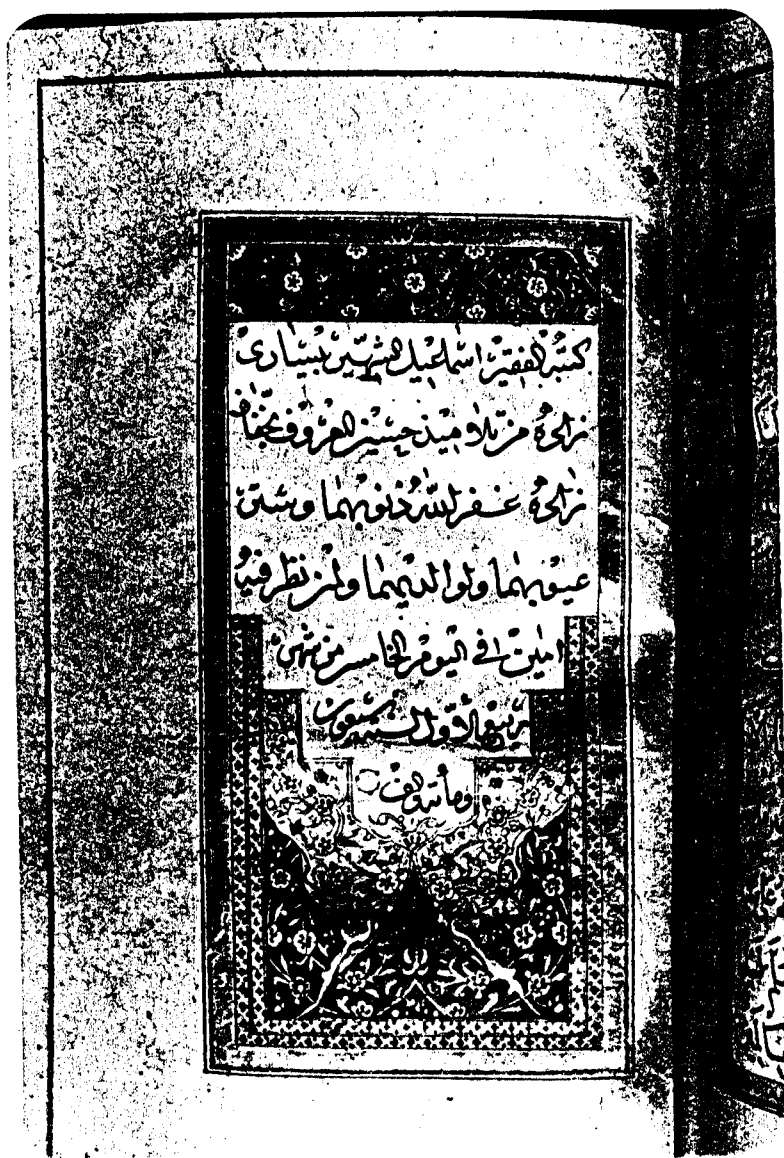 كتبه الفقير اسماعيل الشهير بيساري
زاده من تلاميذ حسين المعروف بخفاف
زاده غفر الله ذنوبهما وستر
عيوبهما ولوالديهما ولمن نظر فيه
امين في اليوم الخامس من شهر
ربيع الاول لسنة تسعين
ومأة والف